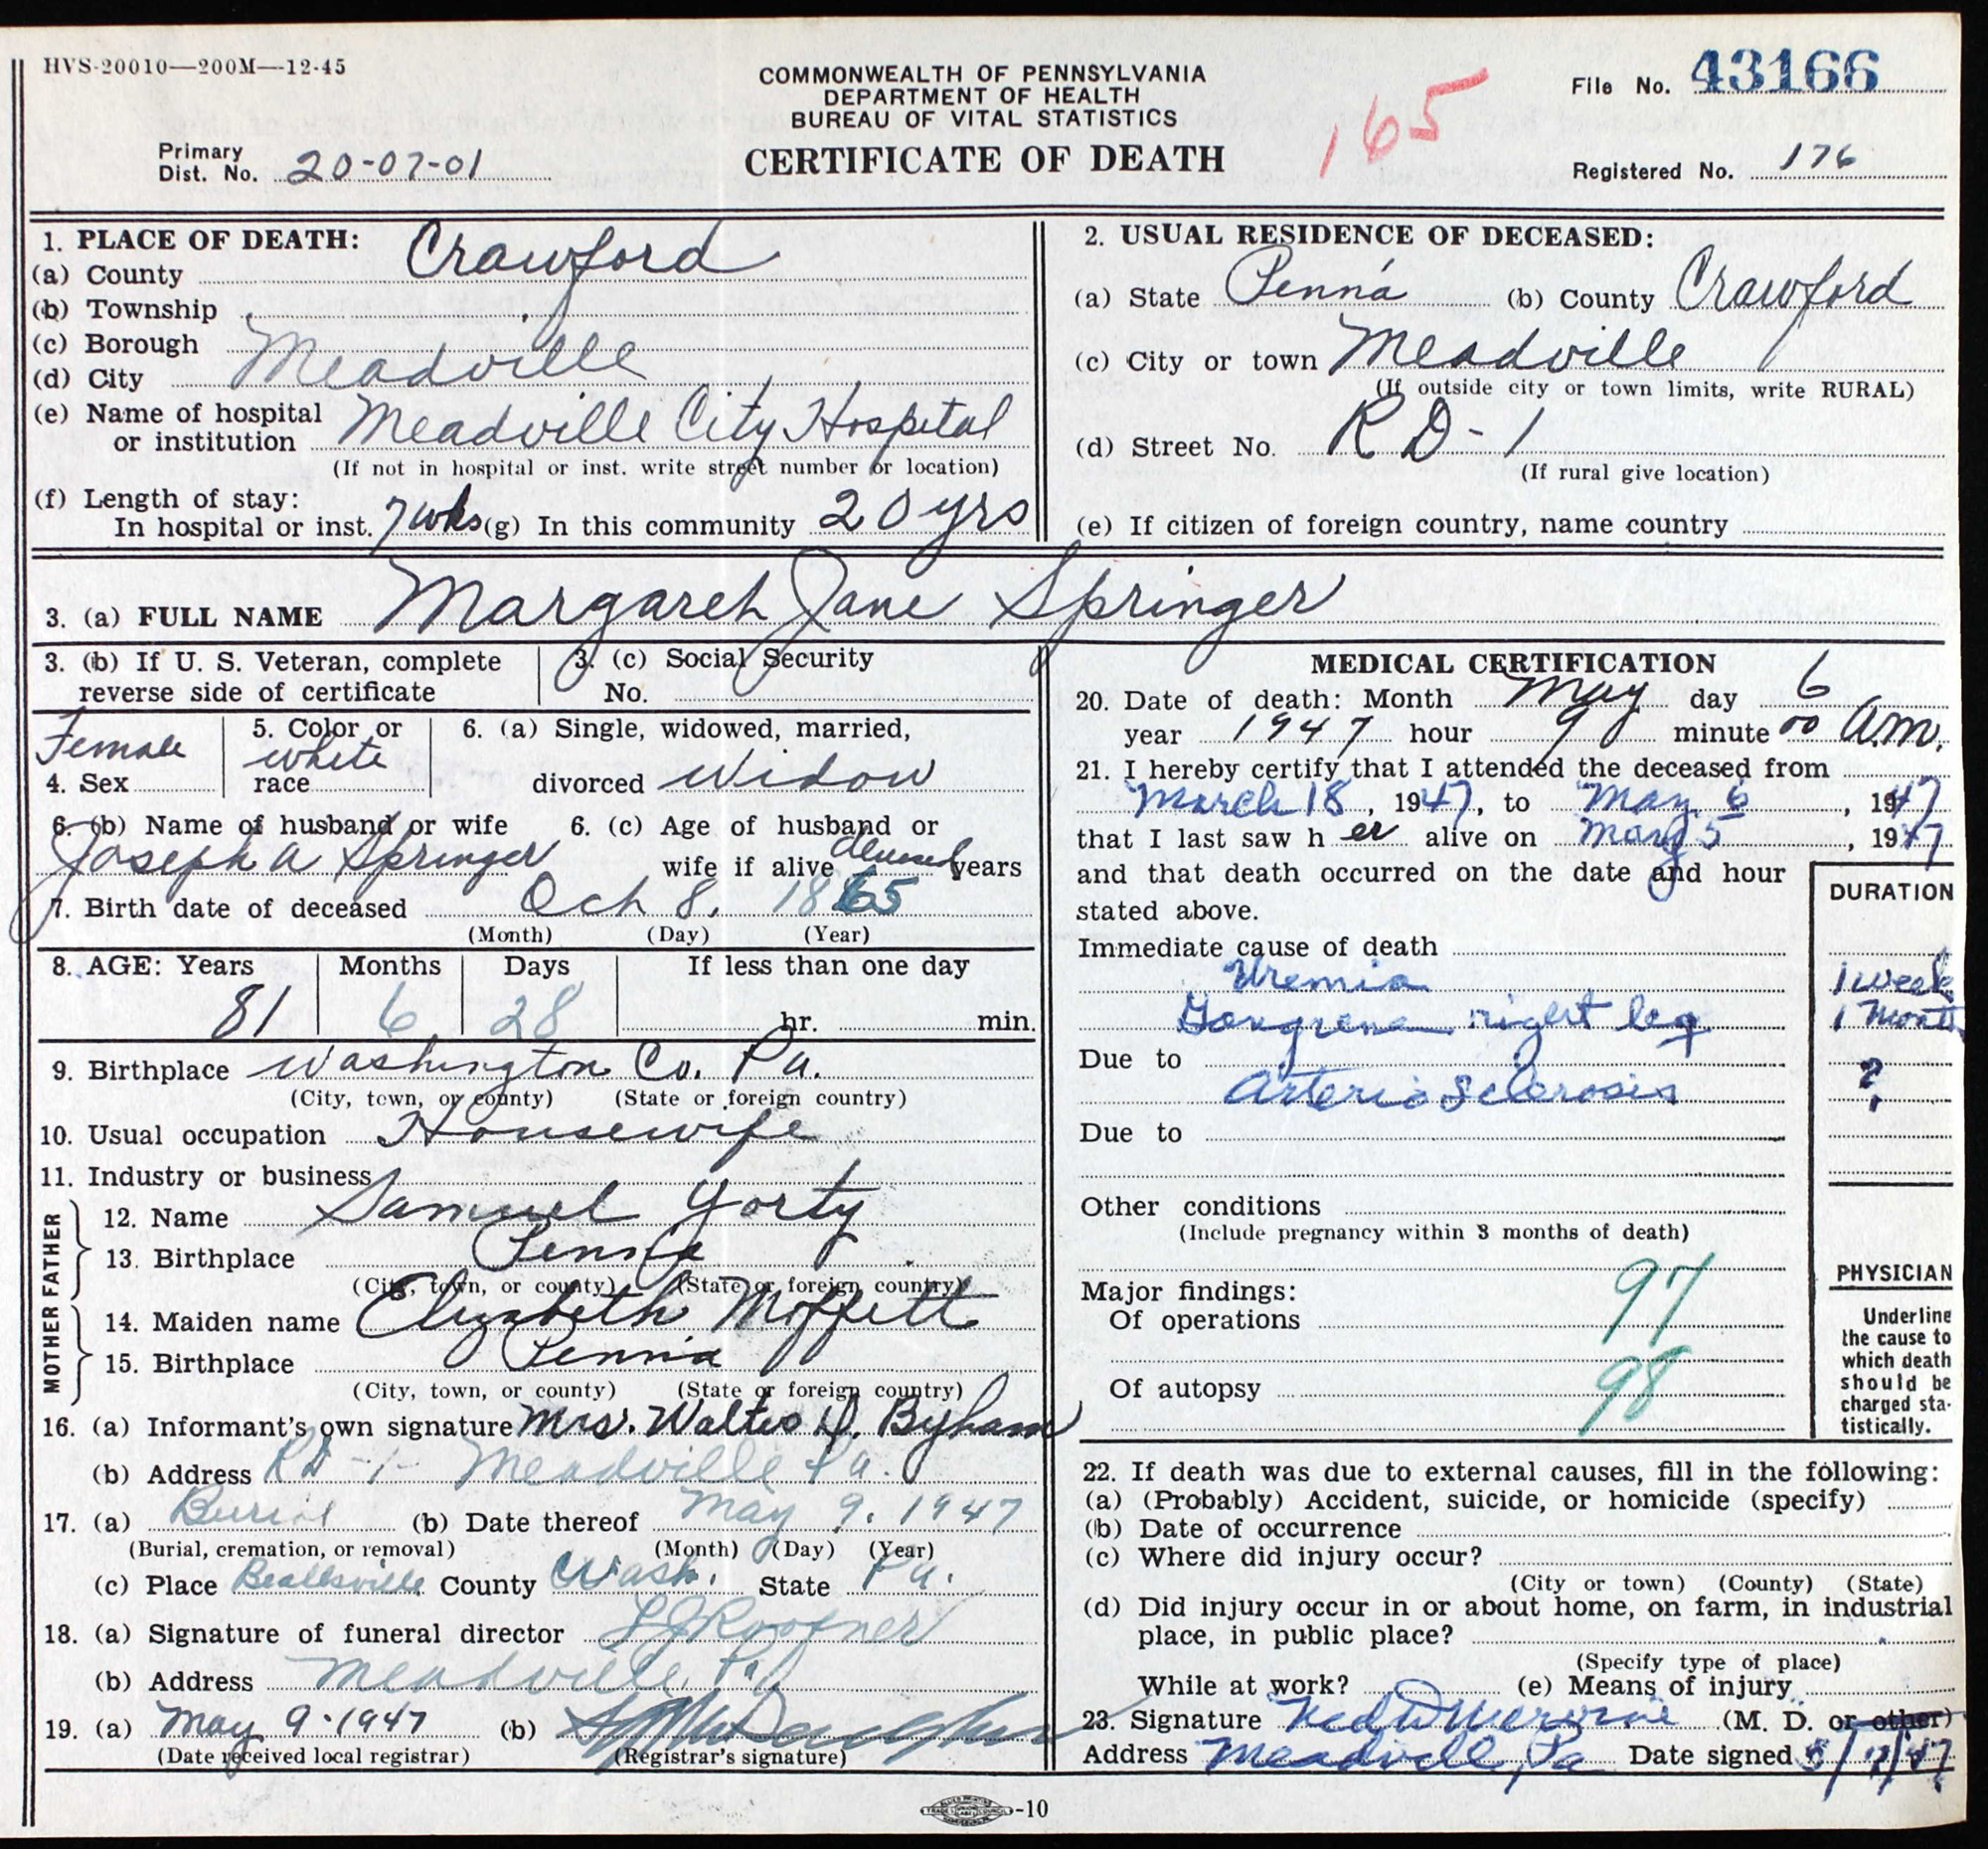 HVS-20010—200M—12-45
COMMONWEALTH OF PENNSYLVANIA
DEPARTMENT OF HEALTH
BUREAU OF VITAL STATISTICS
CERTIFICATE OF DEATH
165
File No. 43166
Primary
Dist. No. 20-07-01
Registered No. 176
1. PLACE OF DEATH:
(a) County Crawford
(b) Township
(c) Borough
(d) City Meadville
(e) Name of hospital
or institution Meadville City Hospital
(If not in hospital or inst. write street number or location)
(f) Length of stay:
In hospital or inst. 7 wks (g) In this community 20 yrs
2. USUAL RESIDENCE OF DECEASED:
(a) State Penna (b) County Crawford
(c) City or town Meadville
(If outside city or town limits, write RURAL)
(d) Street No. RD-1
(If rural give location)
(e) If citizen of foreign country, name country
3. (a) FULL NAME Margaret Jane Springer
3. (b) If U. S. Veteran, complete
reverse side of certificate
3. (c) Social Security
No.
Female
4. Sex
5. Color or
white
race
6. (a) Single, widowed, married,
divorced Widow
6. (b) Name of husband or wife
Joseph A Springer
6. (c) Age of husband or
wife if alive deceased years
7. Birth date of deceased Oct 8, 1865
(Month) (Day) (Year)
8. AGE: Years Months Days If less than one day
81 6 28 hr. min.
9. Birthplace Washington Co. Pa.
(City, town, or county) (State or foreign country)
10. Usual occupation Housewife
11. Industry or business
FATHER
12. Name Samuel Yorty
13. Birthplace Penna
(City, town, or county) (State or foreign country)
MOTHER
14. Maiden name Elizabeth Moffitt
15. Birthplace Penna
(City, town, or county) (State or foreign country)
16. (a) Informant's own signature Mrs. Walter D. Byham
(b) Address RD-1- Meadville Pa.
17. (a) Burial (b) Date thereof May 9. 1947
(Burial, cremation, or removal) (Month) (Day) (Year)
(c) Place Beallsville County Wash. State Pa.
18. (a) Signature of funeral director
(b) Address Meadville, Pa
19. (a) May 9-1947 (b)
(Date received local registrar) (Registrar's signature)
MEDICAL CERTIFICATION
20. Date of death: Month May day 6
year 1947 hour 9 minute 00 A.M.
21. I hereby certify that I attended the deceased from
March 18, 1947, to May 6, 1947
that I last saw h er alive on May 5, 1947
and that death occurred on the date and hour
stated above.
DURATION
Immediate cause of death
Uremia 1 week
Gangrene right leg 1 month
Due to
Arterio Sclerosis ?
Due to
Other conditions
(Include pregnancy within 3 months of death)
Major findings:
Of operations 97
Of autopsy 98
PHYSICIAN
Underline
the cause to
which death
should be
charged sta-
tistically.
22. If death was due to external causes, fill in the following:
(a) (Probably) Accident, suicide, or homicide (specify)
(b) Date of occurrence
(c) Where did injury occur?
(City or town) (County) (State)
(d) Did injury occur in or about home, on farm, in industrial
place, in public place?
(Specify type of place)
While at work? (e) Means of injury
23. Signature (M. D. or other)
Address Meadville, Pa Date signed
-10